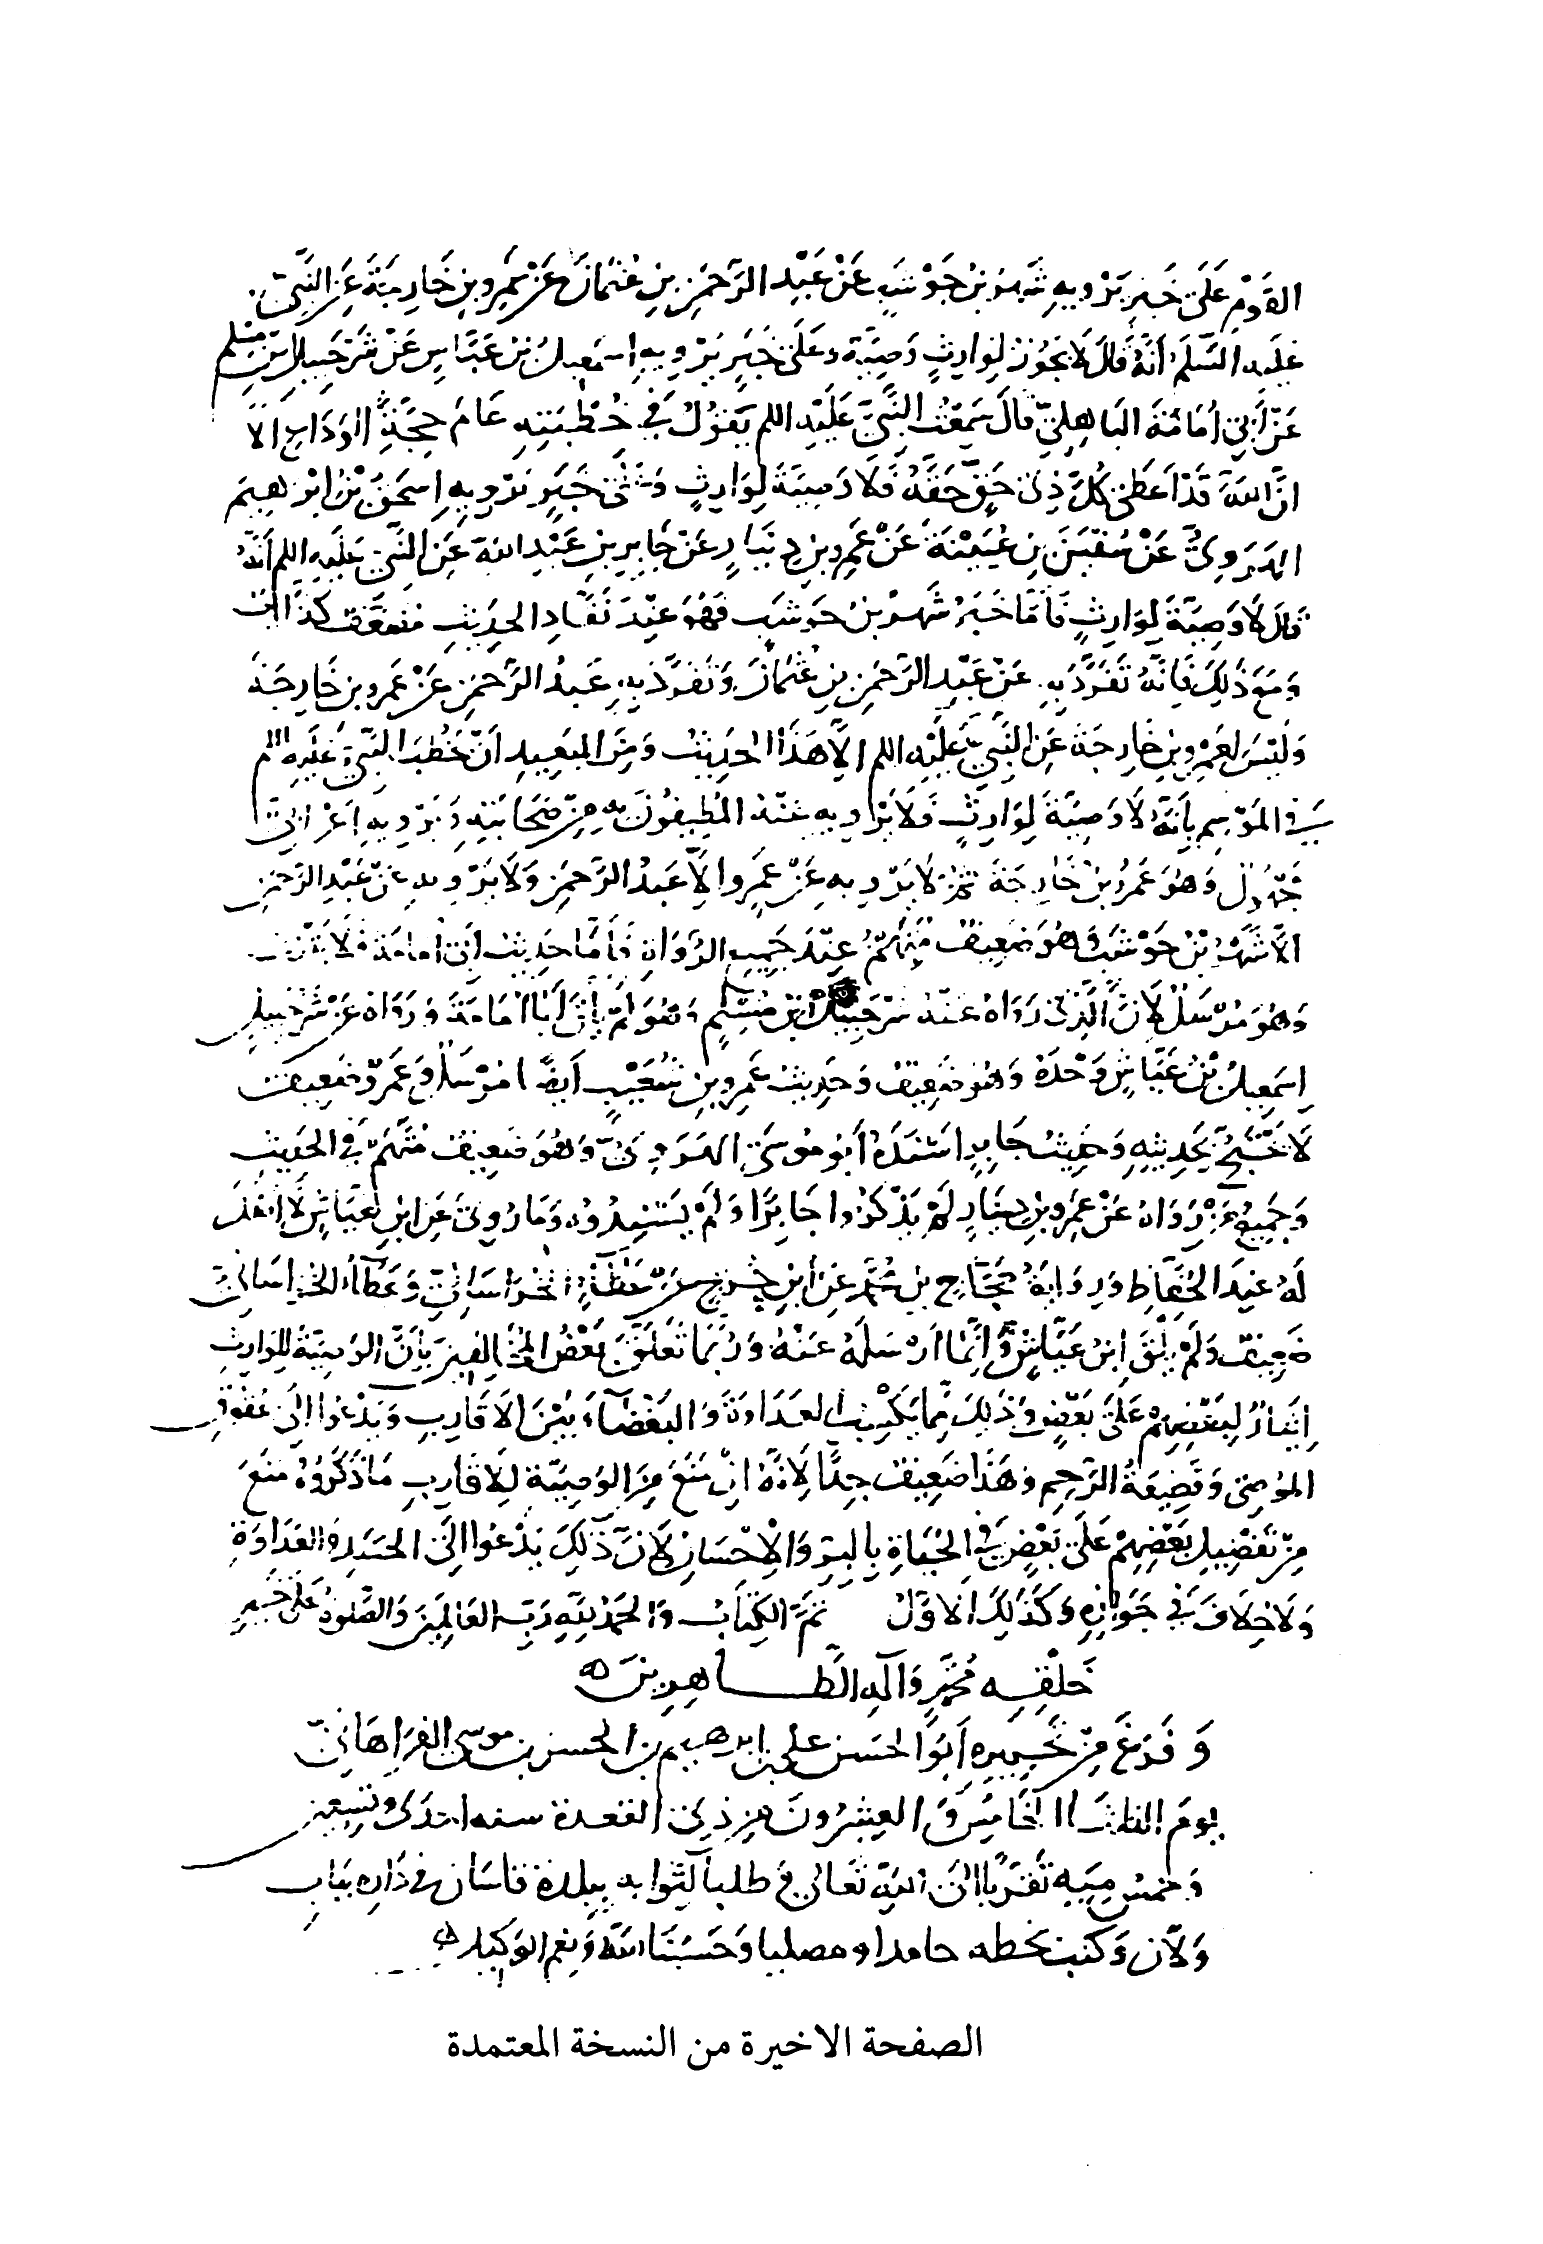 القَوْمِ عَلَى خَبَرٍ يَرْوِيهِ شَهْرُ بْنُ حَوْشَبٍ عَنْ عَبْدِ الرَّحْمَنِ بنِ عُثْمَانَ عَنْ عَمْرِو بنِ خَارِجَةَ عَنِ النَّبِيِّ
عَلَيهِ السَّلَمُ أنَّهُ قَالَ لَا يَجُوزُ لِوَارِثٍ وَصِيَّة وعَلَى خَبَرٍ يَرْوِيهِ إسمعيلُ بنُ عَيَّاسٍ عَنْ شَرَحْبِيلَ ابنِ مُسْلِمٍ
عَنْ أَبِي أُمَامَةَ البَاهِلِيِّ قَالَ سَمِعْتُ النَّبِيَّ عَلَيْهِ السلم يَقُولُ فِي خُطْبَتِهِ عَامَ حِجَّةِ الوَدَاعِ أَلَا
انَّ اللَّهَ قَدْ أَعْطَى كُلَّ ذِي حَقٍّ حَقَّهُ فَلَا وَصِيَّةَ لِوَارِثٍ وَعَلَى خَبَرٍ يَرْوِيهِ إسحقُ بْنُ ابْرهِيمَ
الهَرَوِيُّ عَنْ سُفْيَنَ بنِ عُيَيْنَةَ عَنْ عَمْرِو بنِ دِينَارٍ عَنْ جَابِرِ بنِ عَبْدِ اللهِ عَنِ النَّبِيِّ عَلَيهِ السلم أَنَّهُ
قَالَ لَا وَصِيَّةَ لِوَارِثٍ فَأَمَّا خَبَرُ شَهْرِ بنِ حَوشَب فَهُوَ عِنْدَ نُقَّادِ الحَدِيثِ مُضَعَّفٌ كذَّاب
وَمَعَ ذَلِكَ فَإنَّهُ تَفَرَّدَ بِهِ عَنْ عَبْدِ الرَّحْمَنِ بنِ عُثْمَانَ وَتَفَرَّدَ بِهِ عَبدُ الرَّحمَنِ عَنْ عَمرِو بنِ خَارِجَةَ
وَلَيْسَ لِعَمْرِو بنِ خَارِجَةَ عَنِ النَّبِيِّ عَلَيْهِ السلم إلَّا هَذَا الحَدِيثُ وَمِنَ البَعِيدِ أنْ يَخْطُبَ النَّبِيُّ عَلَيهِ السلم
فِي المَوْسِمِ بِأَنَّهُ لَا وَصِيَّةَ لِوَارِثٍ فَلَا يَرْوِيهِ عَنْهُ المُطِيفُونَ بِهِ مِنْ صَحَابَتِهِ وَيَرْوِيهِ أعْرَابِيٌّ
مَجْهُولٌ وَهُوَ عَمْرُو بنُ خَارِجَةَ ثُمَّ لَا يَرْوِيهِ عَنْ عَمْرٍو إلَّا عَبدُ الرَّحْمَنِ وَلَا يَرْوِيهِ عَنْ عَبْدِ الرَّحمَنِ
الَّا شَهْرُ بْنُ حَوْشَبٍ وَهُوَ ضَعِيفٌ مُتَّهَمٌ عِنْدَ جَمِيعِ الرُّوَاةِ فَأَمَّا حَدِيثُ أَبِي أُمَامَةَ فَلَا يَثْبُتُ
وَهُوَ مُرْسَلٌ لِأنَّ الَّذِي رَوَاهُ عَنْهُ شَرَحْبِيلُ ابْنُ مُسْلِمٍ وَهُوَ لَمْ يَلْقَ أَبَا أُمَامَةَ وَرَوَاهُ عَنْ شَرَحْبِيلَ
إسْمَعِيلُ بْنُ عَيَّاشٍ وَحْدَهُ وَهُوَ ضَعِيفٌ وَحَدِيثُ عَمْرِو بنِ شُعَيْبٍ أَيضًا مُرْسَلٌ وَعَمْرٌو ضَعِيفٌ
لَا يُحْتَجُّ بِحَدِيثِهِ وَحَدِيثُ جَابِرٍ أَسْنَدَهُ أَبُو مُوسَى الهَرَوِيُّ وَهُوَ ضَعِيفٌ مُتَّهَمٌ فِي الحَدِيثِ
وَجَمِيعُ مَنْ رَوَاهُ عَنْ عَمْرِو بنِ دِينَارٍ لَمْ يَذْكُرُوا جَابِرًا وَلَمْ يُسْنِدُوهُ وَمَا رُوِيَ عَنِ ابنِ عَبَّاسٍ لَا أَصْلَ
لَهُ عِندَ الحُفَّاظِ وَرِوَايَةُ حَجَّاجِ بنِ مُحَمَّدٍ عَنِ ابنِ جُرَيْجٍ عَنْ عَطَاءٍ الخُرَاسَانِيِّ وَعَطَاءٌ الخُرَاسَانِيُّ
ضَعِيفٌ وَلَمْ يَلْقَ ابنَ عَبَّاسٍ وَإِنَّمَا أَرْسَلَهُ عَنْهُ وَرُبَّمَا تَعَلَّقَ بَعْضُ المُخَالِفِينَ بِأَنَّ الوَصِيَّةَ لِلْوَارِثِ
إيثَارٌ لِبَعْضِهِمْ عَلَى بَعْضٍ وَذَلِكَ مِمَّا يُكْسِبُ العَدَاوَةَ وَالبَغْضَاءَ بَيْنَ الأَقَارِبِ وَيَدْعُوا إلَى عُقُوقِ
المُوصِي وَقَطِيعَةِ الرَّحِمِ وَهَذَا ضَعِيفٌ جِدًّا لِأنَّهُ إنْ مَنَعَ مِنَ الوَصِيَّةِ لِلأَقَارِبِ مَا ذَكَرُوهُ مَنَعَ
مِنْ تَفْضِيلِ بَعْضِهِمْ عَلَى بَعْضٍ فِي الحَيَاةِ بِالبِرِّ وَالإحْسَانِ لِأنَّ ذَلِكَ يَدْعُوا إلَى الحَسَدِ وَالعَدَاوَةِ
وَلَا خِلَافَ فِي جَوَازِهِ وَكَذَلِكَ الأَوَّلُ تَمَّ الكِتَابُ وَالحَمْدُ لِلَّهِ رَبِّ العَالَمِينَ وَالصَّلوةُ عَلَى خَيرِ
خَلْقِهِ مُحَمَّدٍ وَآلِهِ الطَّاهِرِينَ
وَفَرَغَ مِنْ تحريره أَبُو الحَسَن علي بن ابرهيم بن الحسن بن موسى الفَرَاهَانِيُّ
يومَ الثلثاء الخَامِسَ وَالعِشْرُونَ مِن ذِي القعدة سنه احدى وتسعين
وَخمس مِيَه تَقَرُّبًا إلَى اللهِ تَعَالَى وَ طلبا لثوابه ببلدة قاسَان فِي دَارِه بِبَابِ
وَلان وَكتب بخطه حامدا ومصليا وَحَسْبُنَا اللهُ وَنِعْمَ الوَكِيلُ
الصفحة الاخيرة من النسخة المعتمدة